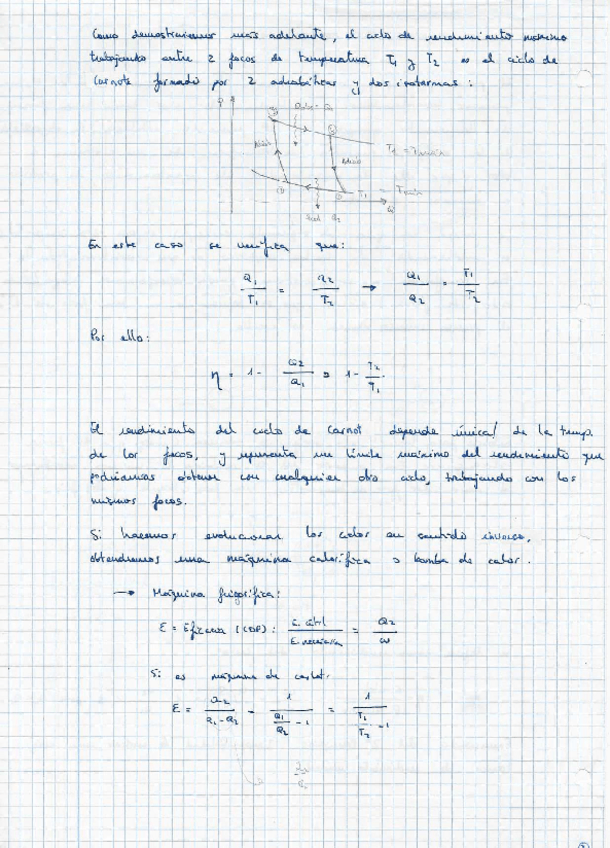 Como demostraremos más adelante, el ciclo de rendimiento máximo
trabajando entre 2 focos de temperatura T1 y T2 es el ciclo de
Carnot formado por 2 adiabáticas y dos isotermas:
P
T1 = Tmáx
T2 = Tmín
En este caso se verifica que:
Q1/T1 = Q2/T2 → Q1/Q2 = T1/T2
Por ello:
η = 1 - Q2/Q1 = 1 - T2/T1
El rendimiento del ciclo de Carnot depende única/ de la temp.
de los focos, y representa un límite máximo del rendimiento que
podríamos obtener con cualquier otro ciclo, trabajando con los
mismos focos.
Si hacemos evolucionar los ciclos en sentido inverso,
obtendremos una máquina calorífica o bomba de calor.
→ Máquina frigorífica:
ε = Eficacia (COP): E. útil/E. necesaria = Q2/W
Si es máquina de Carnot:
ε = Q2/(Q1-Q2) = 1/(Q1/Q2 - 1) = 1/(T1/T2 - 1)